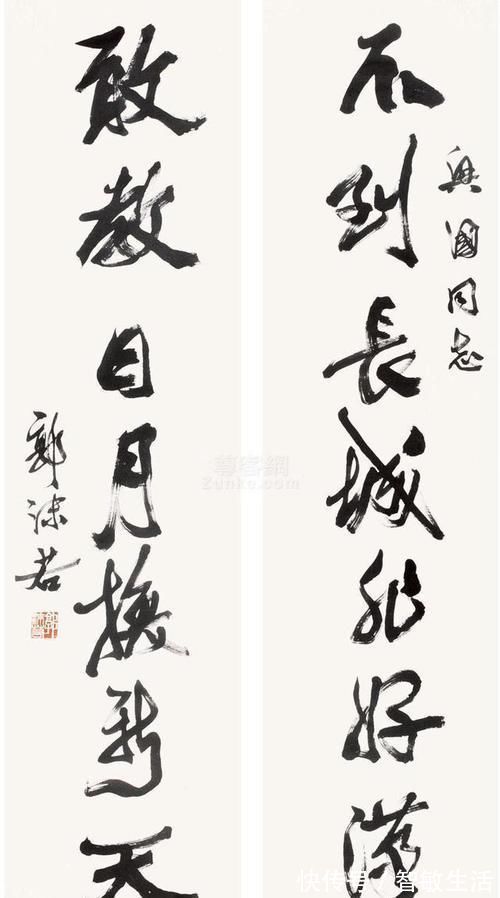 興國同志
不到長城非好漢
敢教日月換新天
郭沫若
尊客網
Zunke.com
快传号/智敏生活